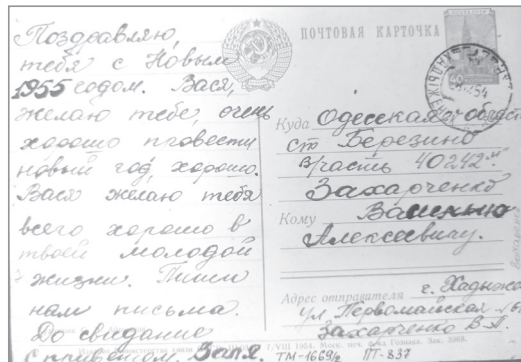 Поздравляю
тебя с Новым
1955 годом. Вася,
желаю тебе, очень
хорошо провести
новый год, хорошо.
Вася желаю тебя
всего хорошо в
твоей молодой
жизни. Пиши
нам письма.
До свидание
с приветом. Валя.
ПОЧТОВАЯ КАРТОЧКА
Куда Одесская область
ст Березино
в/часть 40242
Захарченко
Кому
Алексеевичу.
Адрес отправителя г.
ул. Первомайская
Захарченко В.А.
VIII 1954. Моск. печ. ф-ка Гознака. Зак.
ТМ-16694 ПТ-837